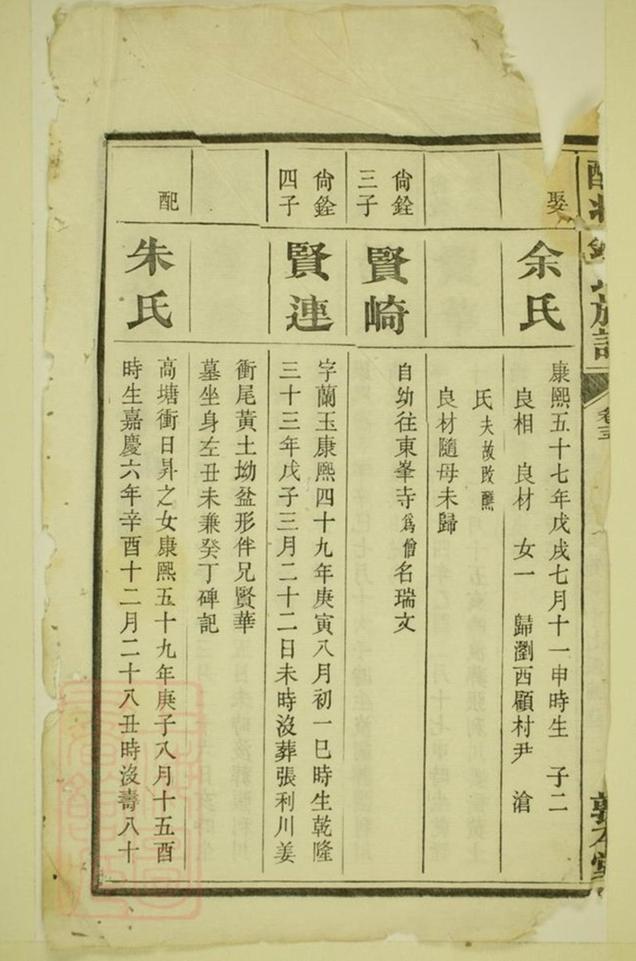 族譜
卷三
敦本堂
娶
余氏
康熙五十七年戊戌七月十一申時生 子二
良相 良材 女一 歸瀏西顧村尹 滄
氏夫故改醮
良材隨母未歸
尙銓
三子
賢崎
自幼往東峯寺為僧名瑞文
尙銓
四子
賢連
字蘭玉康熙四十九年庚寅八月初一巳時生乾隆
三十三年戊子三月二十二日未時沒葬張利川姜
衝尾黃土坳盆形伴兄賢華
墓坐身左丑未兼癸丁碑記
配
朱氏
高塘衝日昇之女康熙五十九年庚子八月十五酉
時生嘉慶六年辛酉十二月二十八丑時沒壽八十